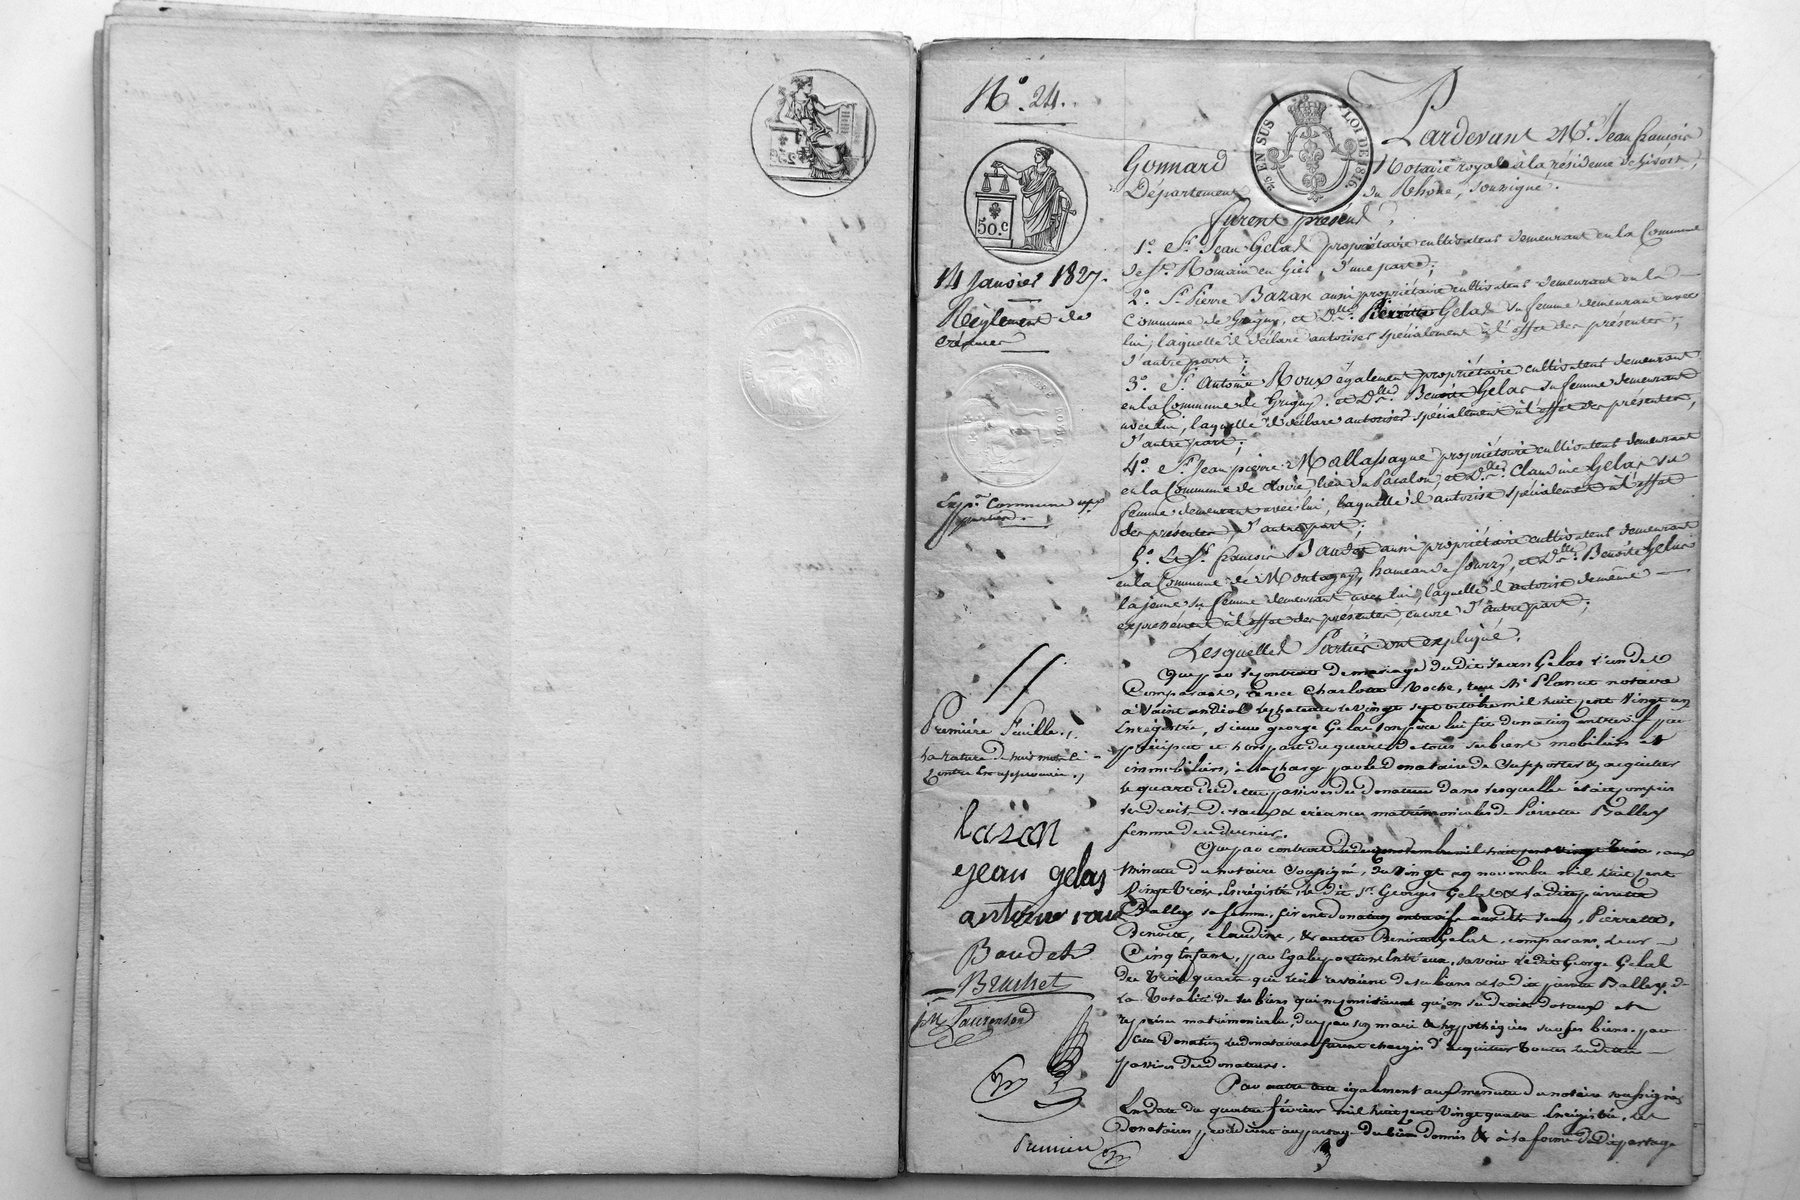 N.° 24.
5.c EN SUS
LOI DE 1816.
50.c
14 Janvier 1827.
Règlement de
créances
Exp.on Commune aux
parties.
Première feuille.
La rature de huit mots ci-
contre est approuvée.
bazan
jean gelas
antoine roux
Baudet
Brachet
Laurenson
Premier
Pardevant M.e Jean françois
Gonnard Notaire royal à la résidence de Givors,
Département du Rhône, soussigné.
furent présens,
1.° S.r Jean Gelas propriétaire cultivateur demeurant en la Commune
de S.t Romain en Giès, d'une part;
2.° S.r Pierre Bazan aussi propriétaire cultivateur demeurant en la
Commune de Grigny, et D.lle Pierrette Gelas sa femme demeurant avec
lui, laquelle il déclare autoriser spécialement à l'effet des présentes,
d'autre part;
3.° S.r Antoine Roux également propriétaire cultivateur demeurant
en la Commune de Grigny, et D.lle Benoite Gelas sa femme demeurant
avec lui, laquelle il déclare autoriser spécialement à l'effet des présentes,
d'autre part;
4.° S.r Jean pierre Mallassagne propriétaire cultivateur demeurant
en la Commune de lieu du et D.lle Claudine Gelas sa
femme demeurant avec lui, laquelle il autorise spécialement à l'effet
des présentes, d'autre part;
5.° Le S.r françois Baudet aussi propriétaire cultivateur demeurant
en la Commune de Montagny, hameau de Sourzy, et D.lle Benoite Gelas
la jeune sa femme demeurant avec lui, laquelle il autorise de même
expressément à l'effet des présentes, encore d'autre part;
Lesquelles Parties ont expliqué,
Que par le contrat de mariage dudit Jean Gelas l'un des
Comparans, avec Charlotte Roche, reçu M.e Plancut notaire
à Saint andéol le chateau le vingt sept octobre mil huit cent vingt un
Enregistré, sieur george Gelas son père lui fit donation entrevifs par
préciput et hors part du quart de tous ses biens mobiliers et
immobiliers, à la charge par le donataire de supporter & acquitter
le quart des dettes passives du donateur dans lesquelles étaient compris
les droits dotaux & créances matrimoniales de Pierrette Balley
femme de ce dernier.
Que par contrat du vingt aux
minutes du notaire soussigné, du vingt un novembre mil huit cent
vingt trois, Enregistré, le dit S.r Georges Gelas & ladite pierrette
Balley sa femme, firent donation entrevifs auxdits Jean, Pierrette,
Benoite, Claudine, & autre Benoite Gelas, comparans, leurs
Cinq Enfans, par Egales portions entr'eux, savoir ledit George Gelas
des trois quarts qui lui restaient de ses biens & ladite pierrette Balley de
la totalité de ses biens qui ne consistaient qu'en ses droits dotaux et
reprises matrimoniales, dus par son mari & hypothéqués sur ses biens. par
cette Donation les donataires furent chargés d'acquitter toutes les dettes
passives des donateurs.
Par autre acte également aux minutes du notaire soussigné
En date du quatre février mil huit cent vingt quatre Enregistré, les
donataires procédèrent au partage des biens donnés & à la forme dudit partage